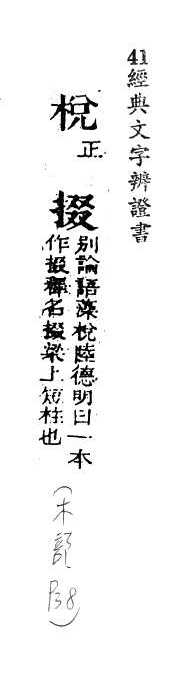 41經典文字辨證書
梲正
掇
別論語藻梲陸德明曰一本
作掇釋名掇梁上短柱也
(木部 P38)